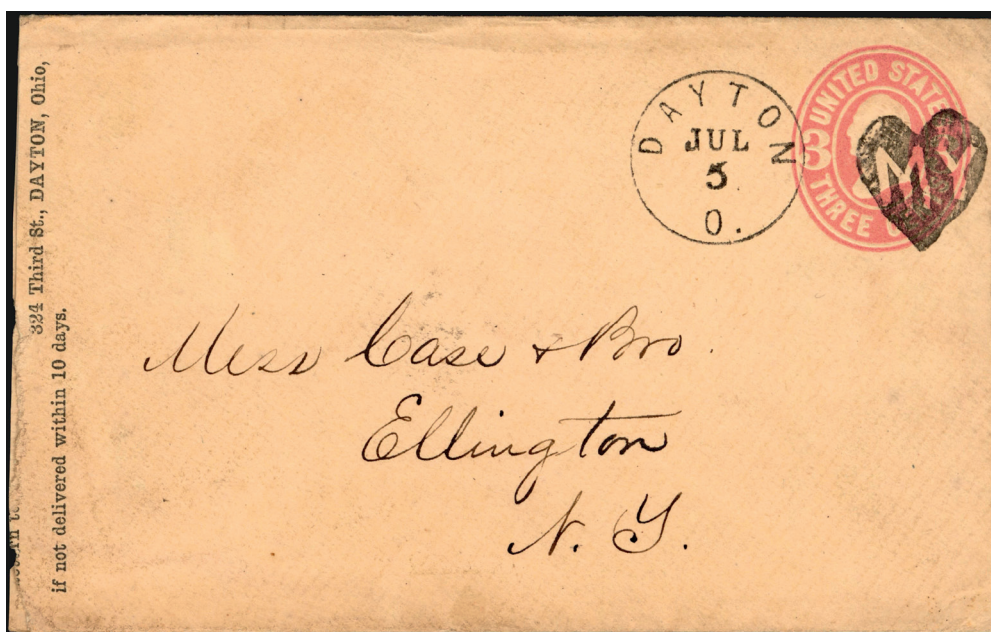 324 Third St., DAYTON, Ohio,
if not delivered within 10 days.
DAYTON
JUL
5
O.
UNITED STATE
3
THREE
MY
Mess Case & Bro.
Ellington
N. Y.